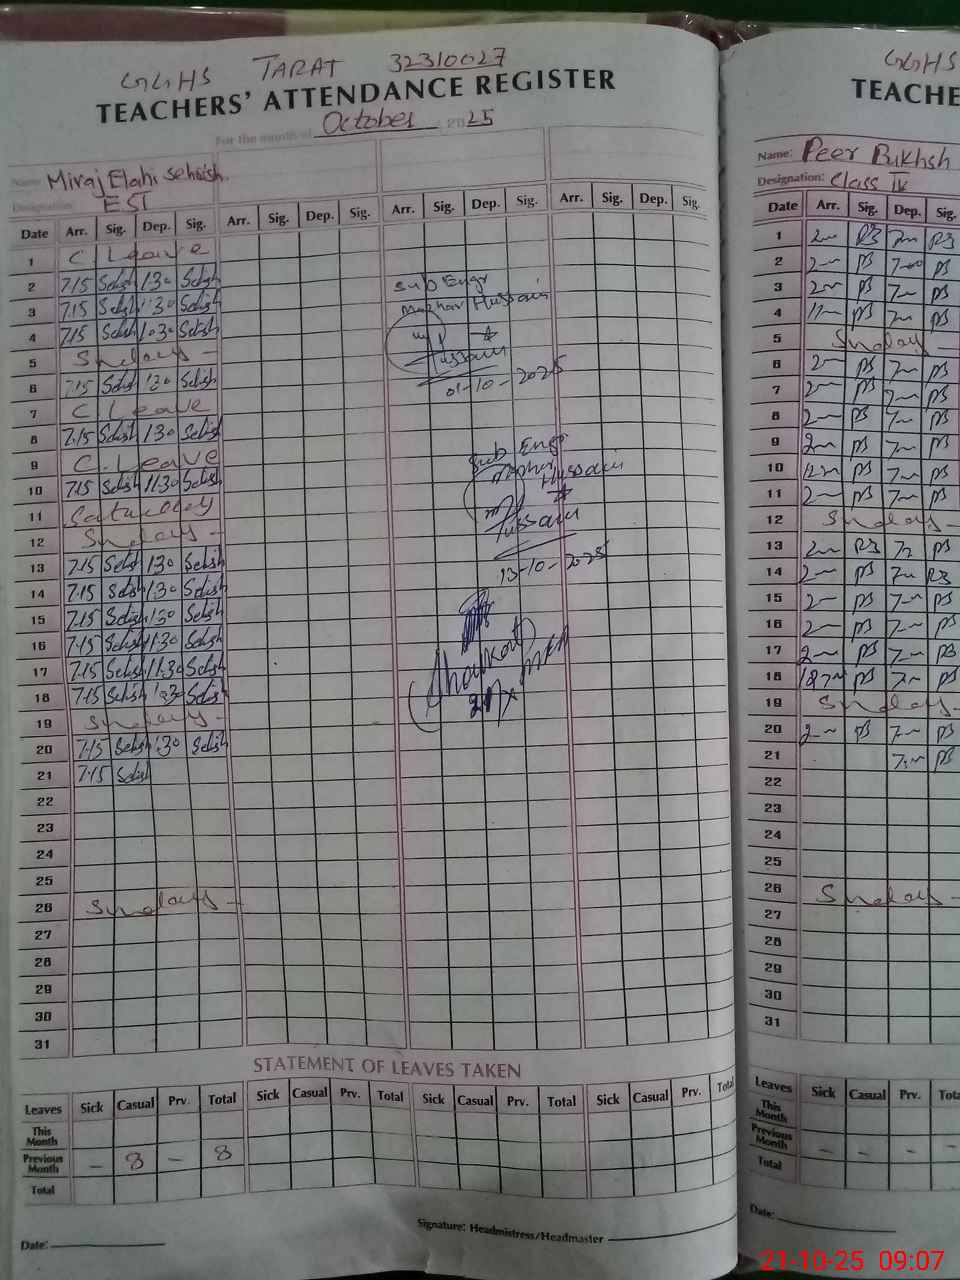 GGHS TARAT 32310027
TEACHERS' ATTENDANCE REGISTER
For the month of October 2025
Name: Miraj Elahi Sehrish.
Designation: EST
Date Arr. Sig. Dep. Sig. Arr. Sig. Dep. Sig. Arr. Sig. Dep. Sig. Arr. Sig. Dep. Sig.
1 C Leave
2 7.15 Sehish 1.30 Sehish
3 7.15 Sehish 1.30 Sehish
4 7.15 Sehish 1.30 Sehish
5 Sndays -
6 7.15 Sehish 1.30 Sehish
7 C Leave
8 7.15 Sehish 1.30 Sehish
9 C. Leave
10 7.15 Sehish 11.30 Sehish
11 Saturday
12 Sndays -
13 7.15 Sehish 1.30 Sehish
14 7.15 Sehish 1.30 Sehish
15 7.15 Sehish 1.30 Sehish
16 7.15 Sehish 1.30 Sehish
17 7.15 Sehish 11.30 Sehish
18 7.15 Sehish 1.30 Sehish
19 Sndays -
20 7.15 Sehish 1.30 Sehish
21 7.15 Sehish
22
23
24
25
26 Sndays -
27
28
29
30
31
Sub Engr
Mazhar Hussain
Hussain
01-10-2025
Sub Engr
Mazhar Hussain
Hussain
13-10-2025
Shoukat
STATEMENT OF LEAVES TAKEN
Leaves Sick Casual Prv. Total Sick Casual Prv. Total Sick Casual Prv. Total Sick Casual Prv. Total
This Month
Previous Month - 8 - 8
Total
Date:
Signature: Headmistress/Headmaster
GGHS
TEACHE
Name: Peer Bukhsh
Designation: Class IV
Date Arr. Sig. Dep. Sig.
1 PB PB
2 PB PB
3 PB PB
4 PB PB
5 Sndays -
6 PB PB
7 PB PB
8 PB PB
9 PB PB
10 PB PB
11 PB PB
12 Sndays -
13 PB PB
14 PB PB
15 PB PB
16 PB PB
17 PB PB
18 PB PB
19 Sndays -
20 PB PB
21 PB
22
23
24
25
26 Sndays -
27
28
29
30
31
Leaves Sick Casual Prv. Tota
This Month
Previous Month - - - -
Total
Date:
21-10-25 09:07